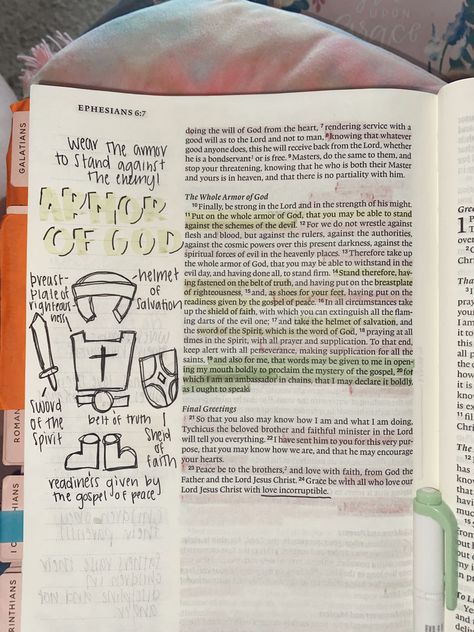 Grace
EPHESIANS 6:7
GALATIANS
wear the armor
to stand against
the enemy!
ARMOR
OF GOD
breast-
plate of
righteous-
ness
helmet
of
salvation
sword
of the
spirit
belt of truth
sheild
of
faith
readiness given by
the gospel of peace
ROMAN
I CO
RINTHIANS
doing the will of God from the heart, 7 rendering service with a
good will as to the Lord and not to man, 8 knowing that whatever
good anyone does, this he will receive back from the Lord, whether
he is a bondservant or is free. 9 Masters, do the same to them, and
stop your threatening, knowing that he who is both their Master
and yours is in heaven, and that there is no partiality with him.
The Whole Armor of God
10 Finally, be strong in the Lord and in the strength of his might.
11 Put on the whole armor of God, that you may be able to stand
against the schemes of the devil. 12 For we do not wrestle against
flesh and blood, but against the rulers, against the authorities,
against the cosmic powers over this present darkness, against the
spiritual forces of evil in the heavenly places. 13 Therefore take up
the whole armor of God, that you may be able to withstand in the
evil day, and having done all, to stand firm. 14 Stand therefore, hav-
ing fastened on the belt of truth, and having put on the breastplate
of righteousness, 15 and, as shoes for your feet, having put on the
readiness given by the gospel of peace. 16 In all circumstances take
up the shield of faith, with which you can extinguish all the flam-
ing darts of the evil one; 17 and take the helmet of salvation, and
the sword of the Spirit, which is the word of God, 18 praying at all
times in the Spirit, with all prayer and supplication. To that end,
keep alert with all perseverance, making supplication for all the
saints, 19 and also for me, that words may be given to me in open-
ing my mouth boldly to proclaim the mystery of the gospel, 20 for
which I am an ambassador in chains, that I may declare it boldly,
as I ought to speak.
Final Greetings
21 So that you also may know how I am and what I am doing,
Tychicus the beloved brother and faithful minister in the Lord
will tell you everything. 22 I have sent him to you for this very pur-
pose, that you may know how we are, and that he may encourage
your hearts.
23 Peace be to the brothers, and love with faith, from God the
Father and the Lord Jesus Christ. 24 Grace be with all who love our
Lord Jesus Christ with love incorruptible.